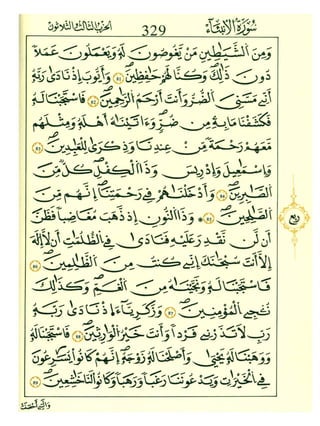 سُورَةُ الْأَنْبِيَاءِ 329 الجزء السابع عشر
وَمِنَ الشَّيَاطِينِ مَنْ يَغُوصُونَ لَهُ وَيَعْمَلُونَ عَمَلًا
دُونَ ذَٰلِكَ وَكُنَّا لَهُمْ حَافِظِينَ ﴿٨٢﴾ وَأَيُّوبَ إِذْ نَادَىٰ رَبَّهُ
أَنِّي مَسَّنِيَ الضُّرُّ وَأَنْتَ أَرْحَمُ الرَّاحِمِينَ ﴿٨٣﴾ فَاسْتَجَبْنَا لَهُ
فَكَشَفْنَا مَا بِهِ مِنْ ضُرٍّ وَآتَيْنَاهُ أَهْلَهُ وَمِثْلَهُمْ
مَعَهُمْ رَحْمَةً مِنْ عِنْدِنَا وَذِكْرَىٰ لِلْعَابِدِينَ ﴿٨٤﴾
وَإِسْمَاعِيلَ وَإِدْرِيسَ وَذَا الْكِفْلِ كُلٌّ مِنَ
الصَّابِرِينَ ﴿٨٥﴾ وَأَدْخَلْنَاهُمْ فِي رَحْمَتِنَا إِنَّهُمْ مِنَ
الصَّالِحِينَ ﴿٨٦﴾ وَذَا النُّونِ إِذْ ذَهَبَ مُغَاضِبًا فَظَنَّ
أَنْ لَنْ نَقْدِرَ عَلَيْهِ فَنَادَىٰ فِي الظُّلُمَاتِ أَنْ لَا إِلَٰهَ
إِلَّا أَنْتَ سُبْحَانَكَ إِنِّي كُنْتُ مِنَ الظَّالِمِينَ ﴿٨٧﴾
فَاسْتَجَبْنَا لَهُ وَنَجَّيْنَاهُ مِنَ الْغَمِّ وَكَذَٰلِكَ
نُنْجِي الْمُؤْمِنِينَ ﴿٨٨﴾ وَزَكَرِيَّاءَ إِذْ نَادَىٰ رَبَّهُ
رَبِّ لَا تَذَرْنِي فَرْدًا وَأَنْتَ خَيْرُ الْوَارِثِينَ ﴿٨٩﴾ فَاسْتَجَبْنَا لَهُ
وَوَهَبْنَا لَهُ يَحْيَىٰ وَأَصْلَحْنَا لَهُ زَوْجَهُ إِنَّهُمْ كَانُوا يُسَارِعُونَ
فِي الْخَيْرَاتِ وَيَدْعُونَنَا رَغَبًا وَرَهَبًا وَكَانُوا لَنَا خَاشِعِينَ ﴿٩٠﴾
ربع
وَالَّتِي أَحْصَنَتْ